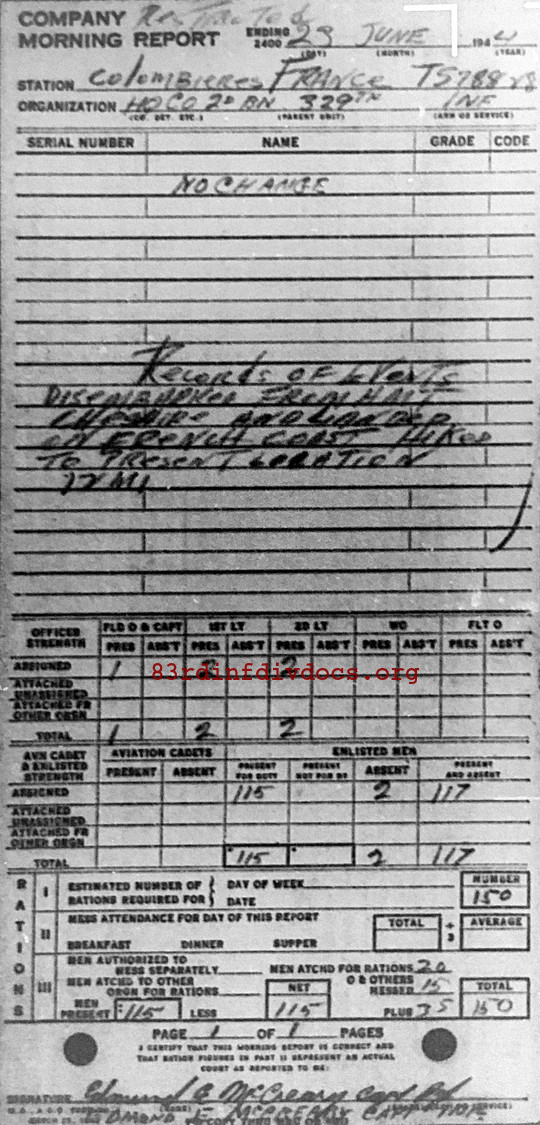 COMPANY Restricted
MORNING REPORT ENDING 2400 23 JUNE 1944
(DAY) (MONTH) (YEAR)
STATION Colombieres France T5788
ORGANIZATION HQ CO 2D BN 329TH INF
(CO. DET. ETC.) (PARENT UNIT) (ARM OR SERVICE)
SERIAL NUMBER NAME GRADE CODE
NO CHANGE
Records of Events
DISEMBARKED FROM HMT
CHESHIRE AND LANDED
ON FRENCH COAST HIKED
TO PRESENT LOCATION
12 MI
OFFICER STRENGTH FLD O & CAPT 1ST LT 2D LT WO FLT O
PRES ABS'T PRES ABS'T PRES ABS'T PRES ABS'T PRES ABS'T
ASSIGNED 1 2 2
83rdinfdivdocs.org
ATTACHED UNASSIGNED
ATTACHED FR OTHER ORGN
TOTAL 1 2 2
AVN CADET & ENLISTED STRENGTH AVIATION CADETS ENLISTED MEN
PRESENT ABSENT PRESENT FOR DUTY PRESENT NOT FOR DY ABSENT PRESENT AND ABSENT
ASSIGNED 115 2 117
ATTACHED UNASSIGNED
ATTACHED FR OTHER ORGN
TOTAL 115 2 117
RATIONS
I ESTIMATED NUMBER OF RATIONS REQUIRED FOR DAY OF WEEK DATE NUMBER 150
II MESS ATTENDANCE FOR DAY OF THIS REPORT TOTAL ÷ 3 AVERAGE
BREAKFAST DINNER SUPPER
III MEN AUTHORIZED TO MESS SEPARATELY MEN ATCHD FOR RATIONS 20
MEN ATCHD TO OTHER ORGN FOR RATIONS NET O & OTHERS MESSED 15 TOTAL
MEN PRESENT 115 LESS 115 PLUS 35 150
PAGE 1 OF 1 PAGES
I CERTIFY THAT THIS MORNING REPORT IS CORRECT AND
THAT RATION FIGURES IN PART II REPRESENT AN ACTUAL
COUNT AS REPORTED TO ME:
SIGNATURE Edmund E McCreary Capt
EDMUND E MCCREARY CAPT INF